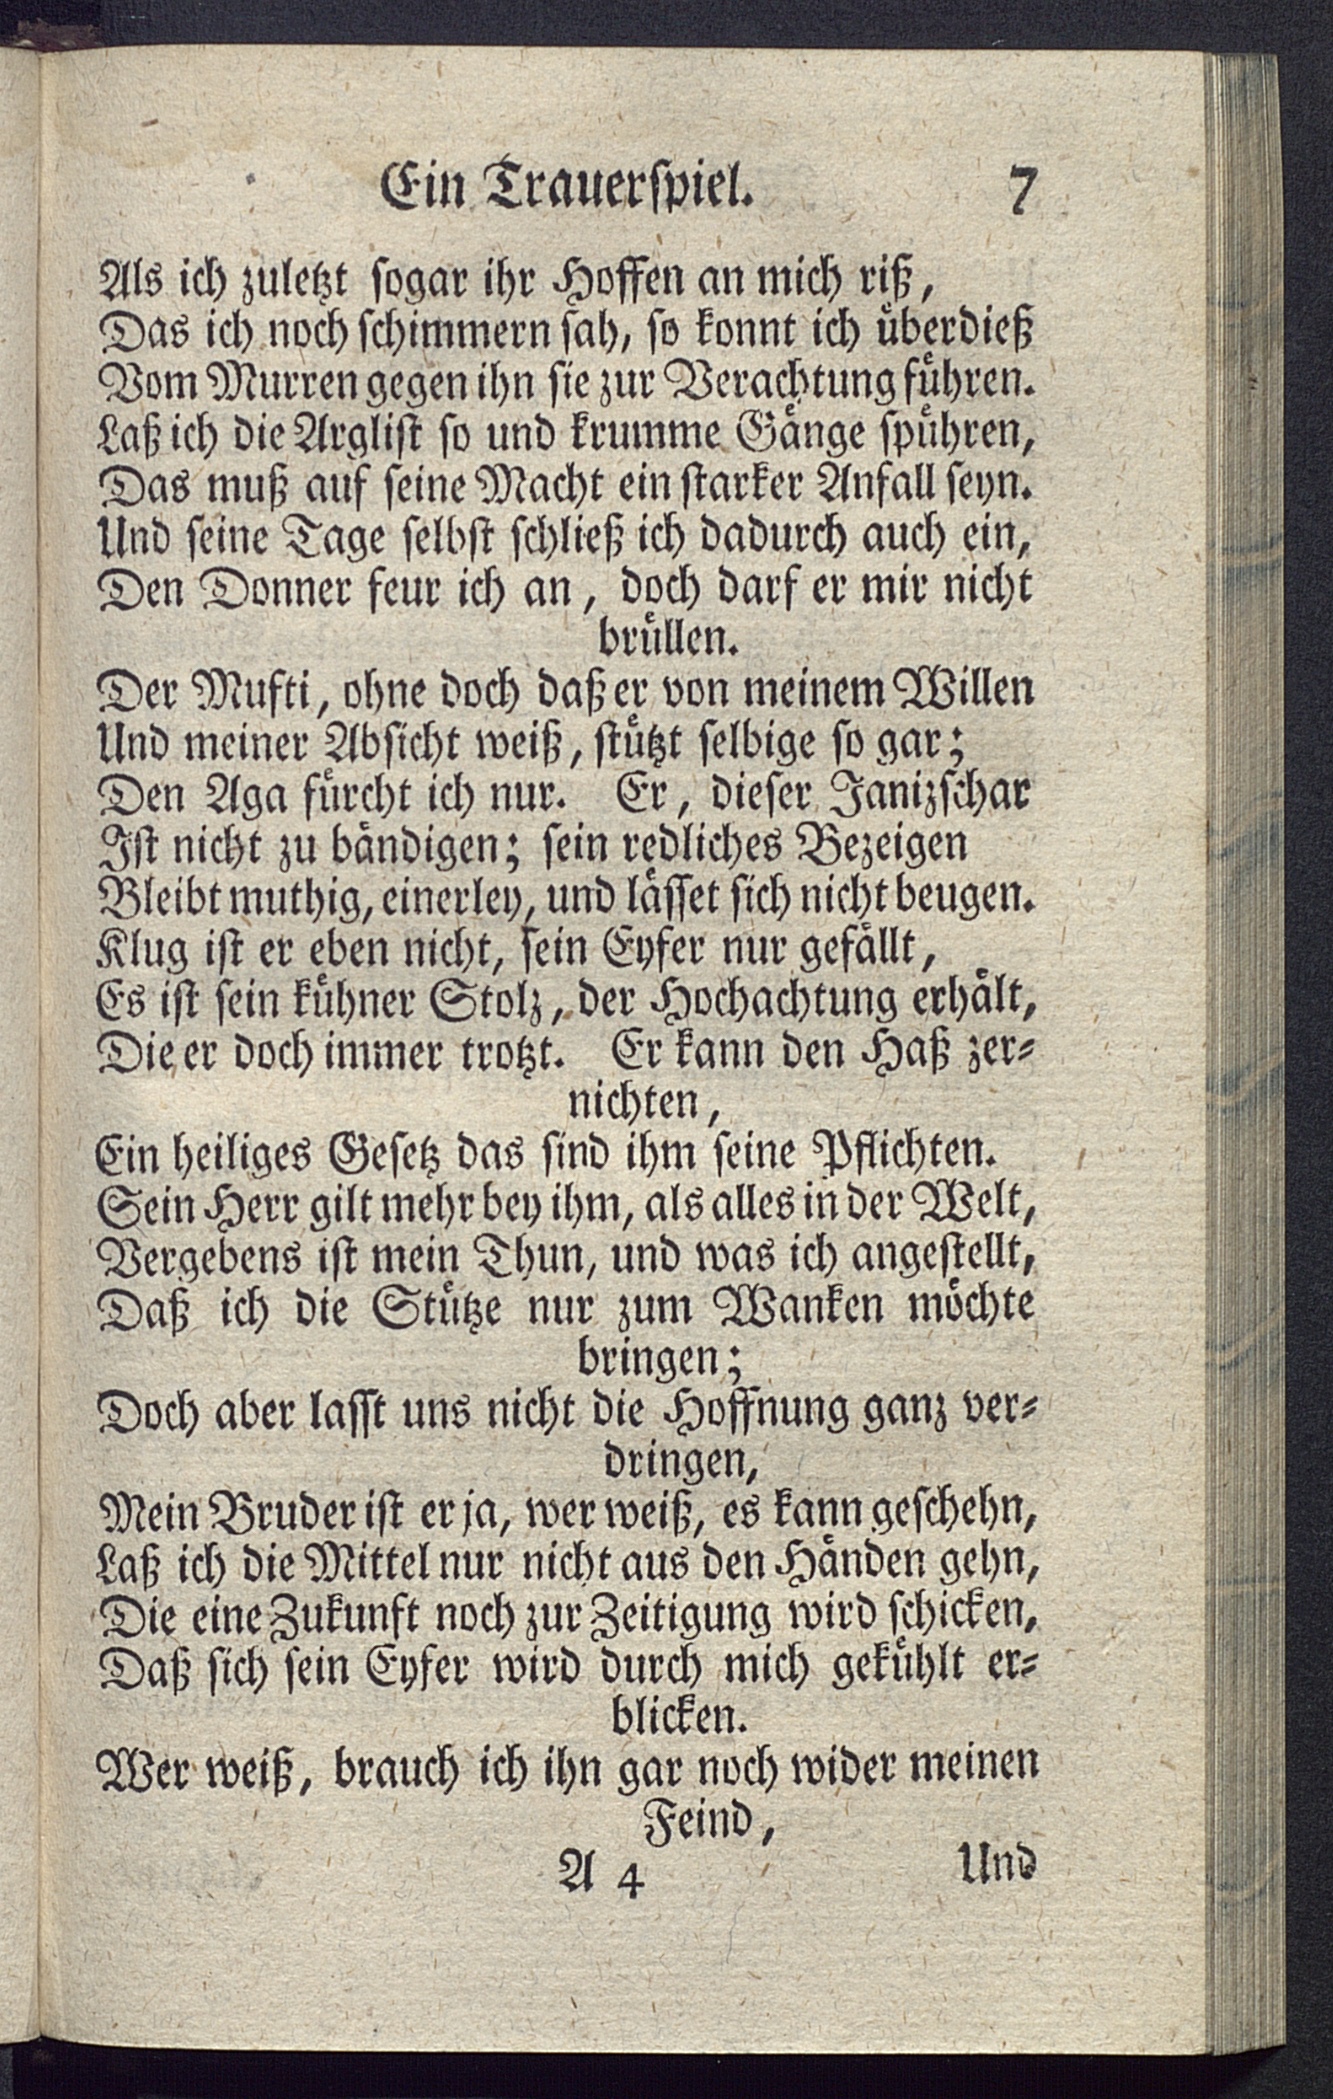 Ein Trauerspiel. 7
Als ich zuletzt sogar ihr Hoffen an mich riß,
Das ich noch schimmern sah, so konnt ich überdieß
Vom Murren gegen ihn sie zur Verachtung führen.
Laß ich die Arglist so und krumme Gänge spühren,
Das muß auf seine Macht ein starker Anfall seyn.
Und seine Tage selbst schließ ich dadurch auch ein,
Den Donner feur ich an, doch darf er mir nicht
brüllen.
Der Mufti, ohne doch daß er von meinem Willen
Und meiner Absicht weiß, stützt selbige so gar;
Den Aga fürcht ich nur. Er, dieser Janizschar
Ist nicht zu bändigen; sein redliches Bezeigen
Bleibt muthig, einerley, und lässet sich nicht beugen.
Klug ist er eben nicht, sein Eyfer nur gefällt,
Es ist sein kühner Stolz, der Hochachtung erhält,
Die er doch immer trotzt. Er kann den Haß zer-
nichten,
Ein heiliges Gesetz das sind ihm seine Pflichten.
Sein Herr gilt mehr bey ihm, als alles in der Welt,
Vergebens ist mein Thun, und was ich angestellt,
Daß ich die Stütze nur zum Wanken möchte
bringen;
Doch aber lasst uns nicht die Hoffnung ganz ver-
dringen,
Mein Bruder ist er ja, wer weiß, es kann geschehn,
Laß ich die Mittel nur nicht aus den Händen gehn,
Die eine Zukunft noch zur Zeitigung wird schicken,
Daß sich sein Eyfer wird durch mich gekühlt er-
blicken.
Wer weiß, brauch ich ihn gar noch wider meinen
Feind,
A 4 Und